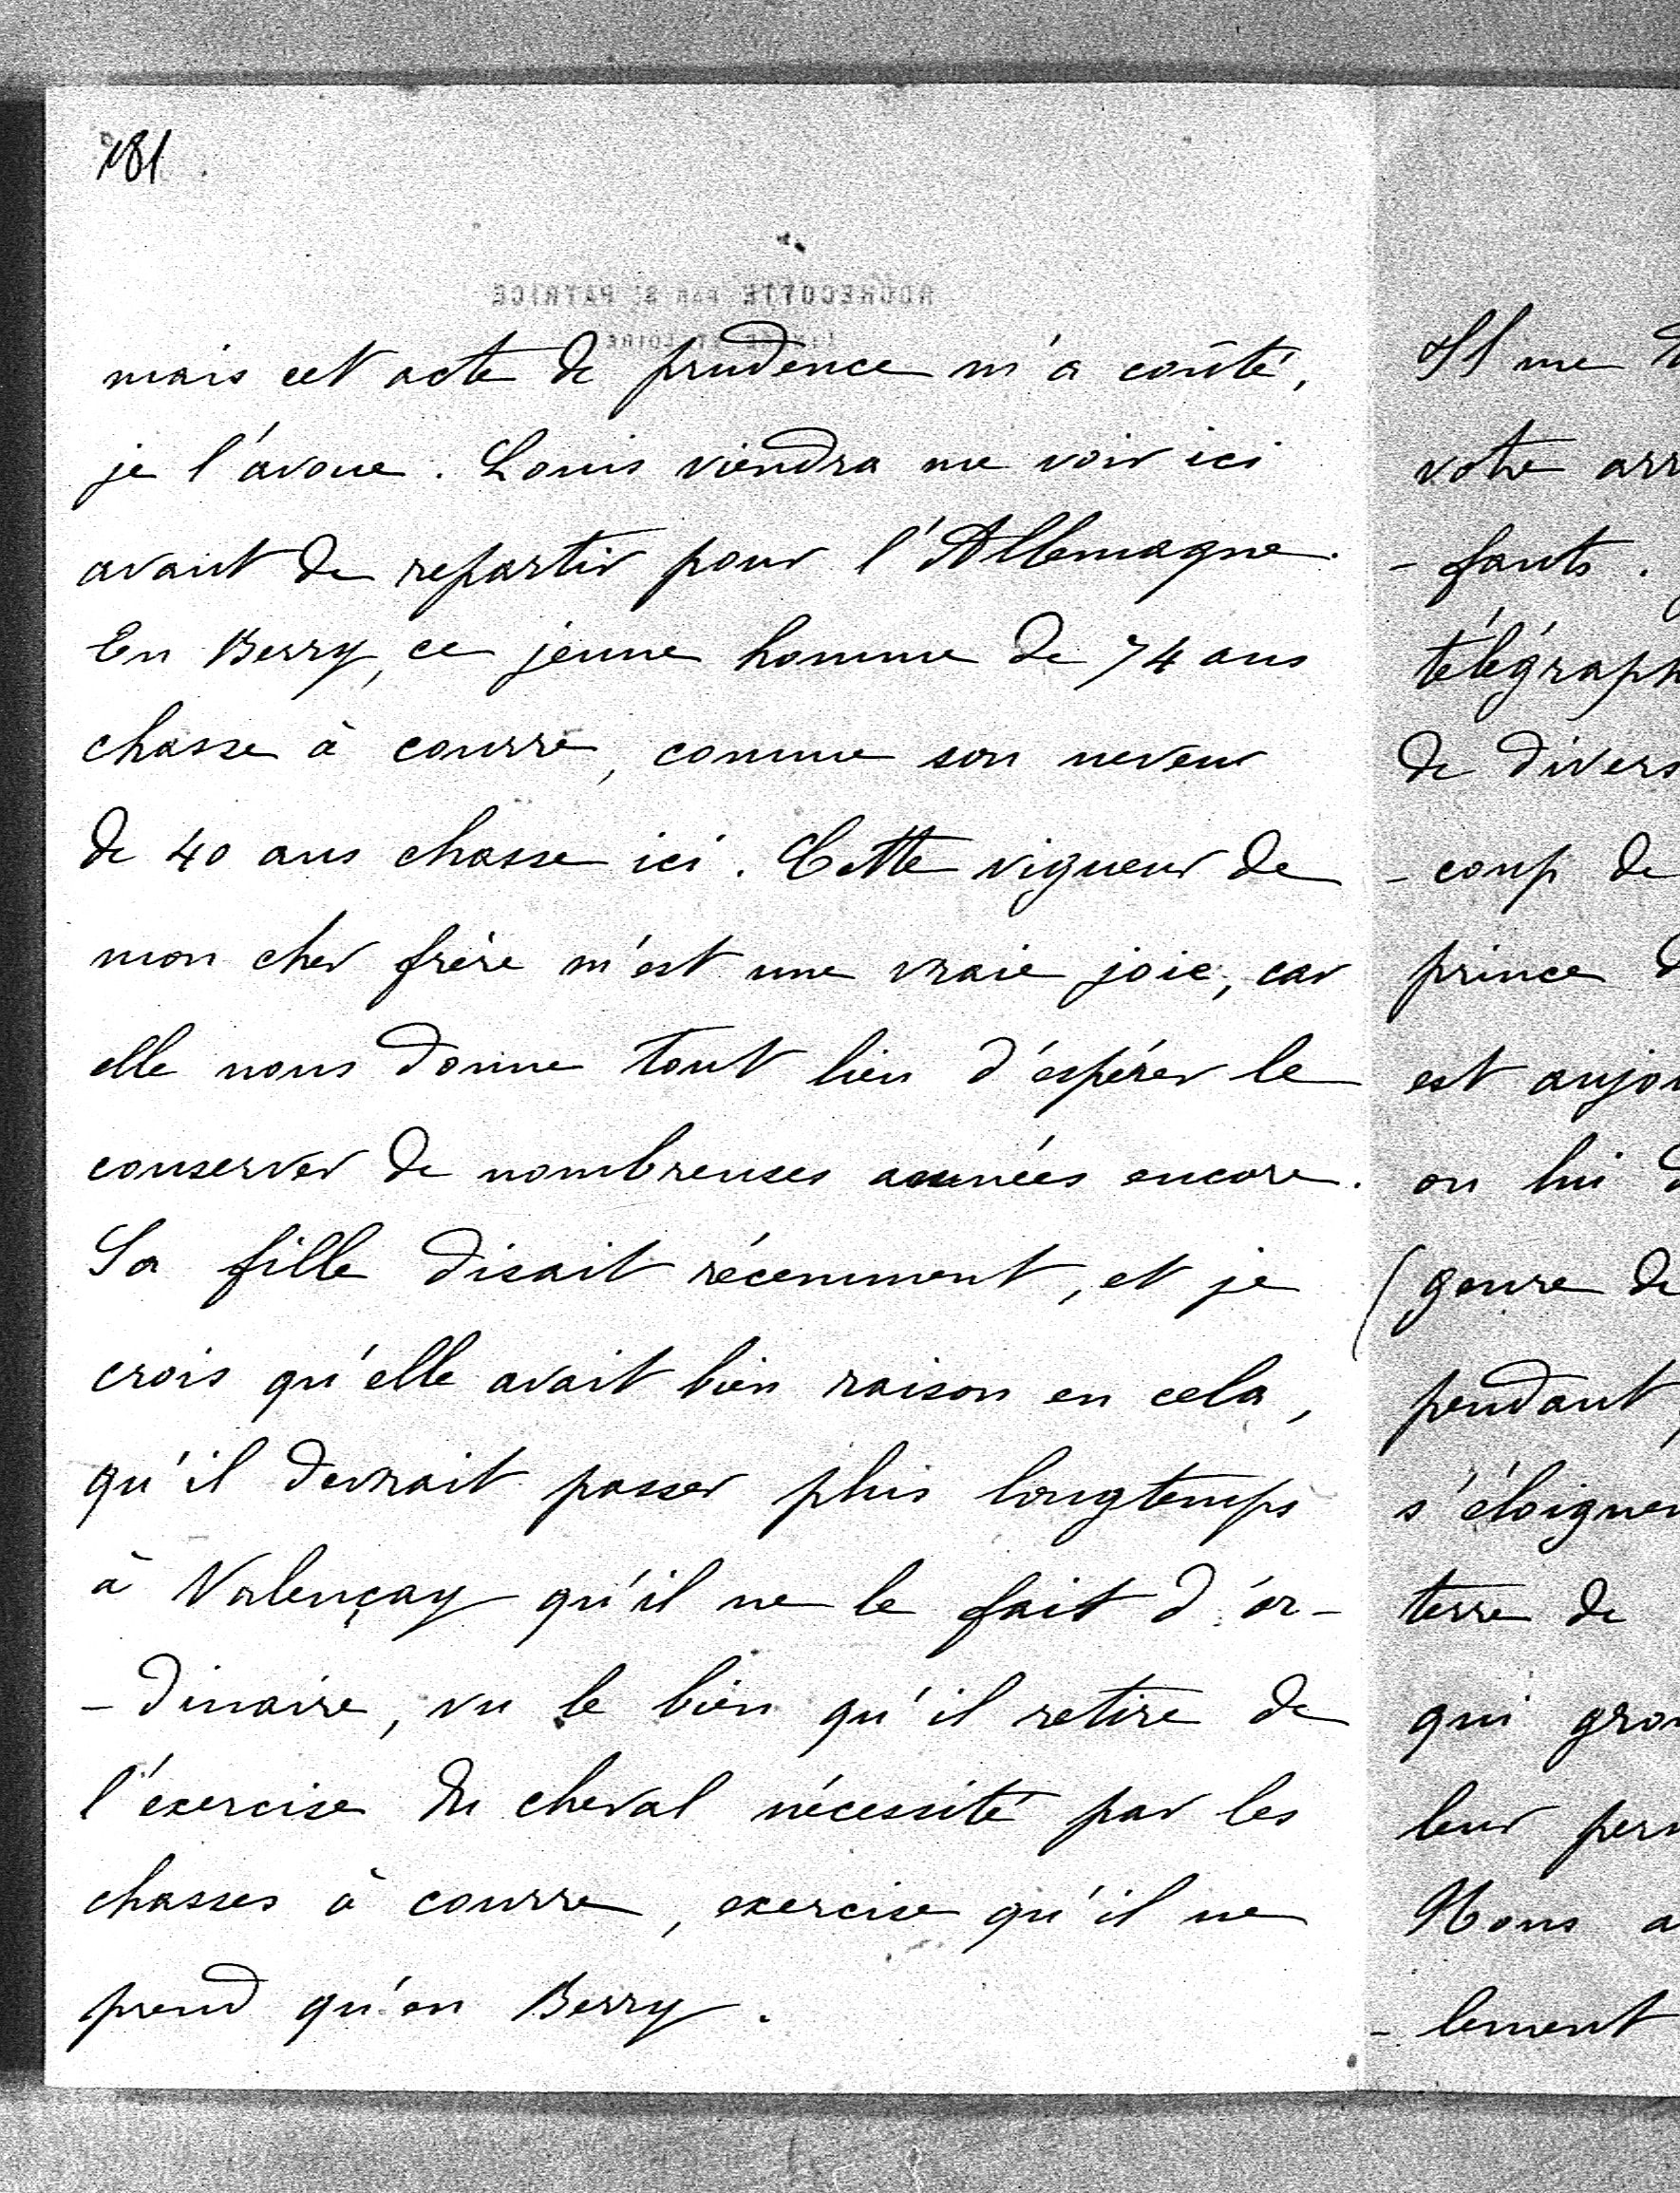 181.
ROCHECOTTE PAR ST PATRICE
INDRE ET LOIRE
mais cet acte de prudence m'a coûté,
je l'avoue. Louis viendra me voir ici
avant de repartir pour l'Allemagne.
En Berry, ce jeune homme de 74 ans
chasse à courre, comme son neveu
de 40 ans chasse ici. Cette vigueur de
mon cher frère m'est une vraie joie, car
elle nous donne tout lieu d'espérer le
conserver de nombreuses années encore.
Sa fille disait récemment, et je
crois qu'elle avait bien raison en cela,
qu'il devrait passer plus longtemps
à Valençay qu'il ne le fait d'or-
-dinaire, vu le bien qu'il retire de
l'exercise du cheval nécessité par les
chasses à courre, exercise qu'il ne
prend qu'en Berry.
Il me
votre arr
-fants.
télégraph
de divers
-coup de
prince d
est aujou
on lui d
(genre de
pendant
s'éloigner
terre de
qui gro
leur per
Nous a
-lement